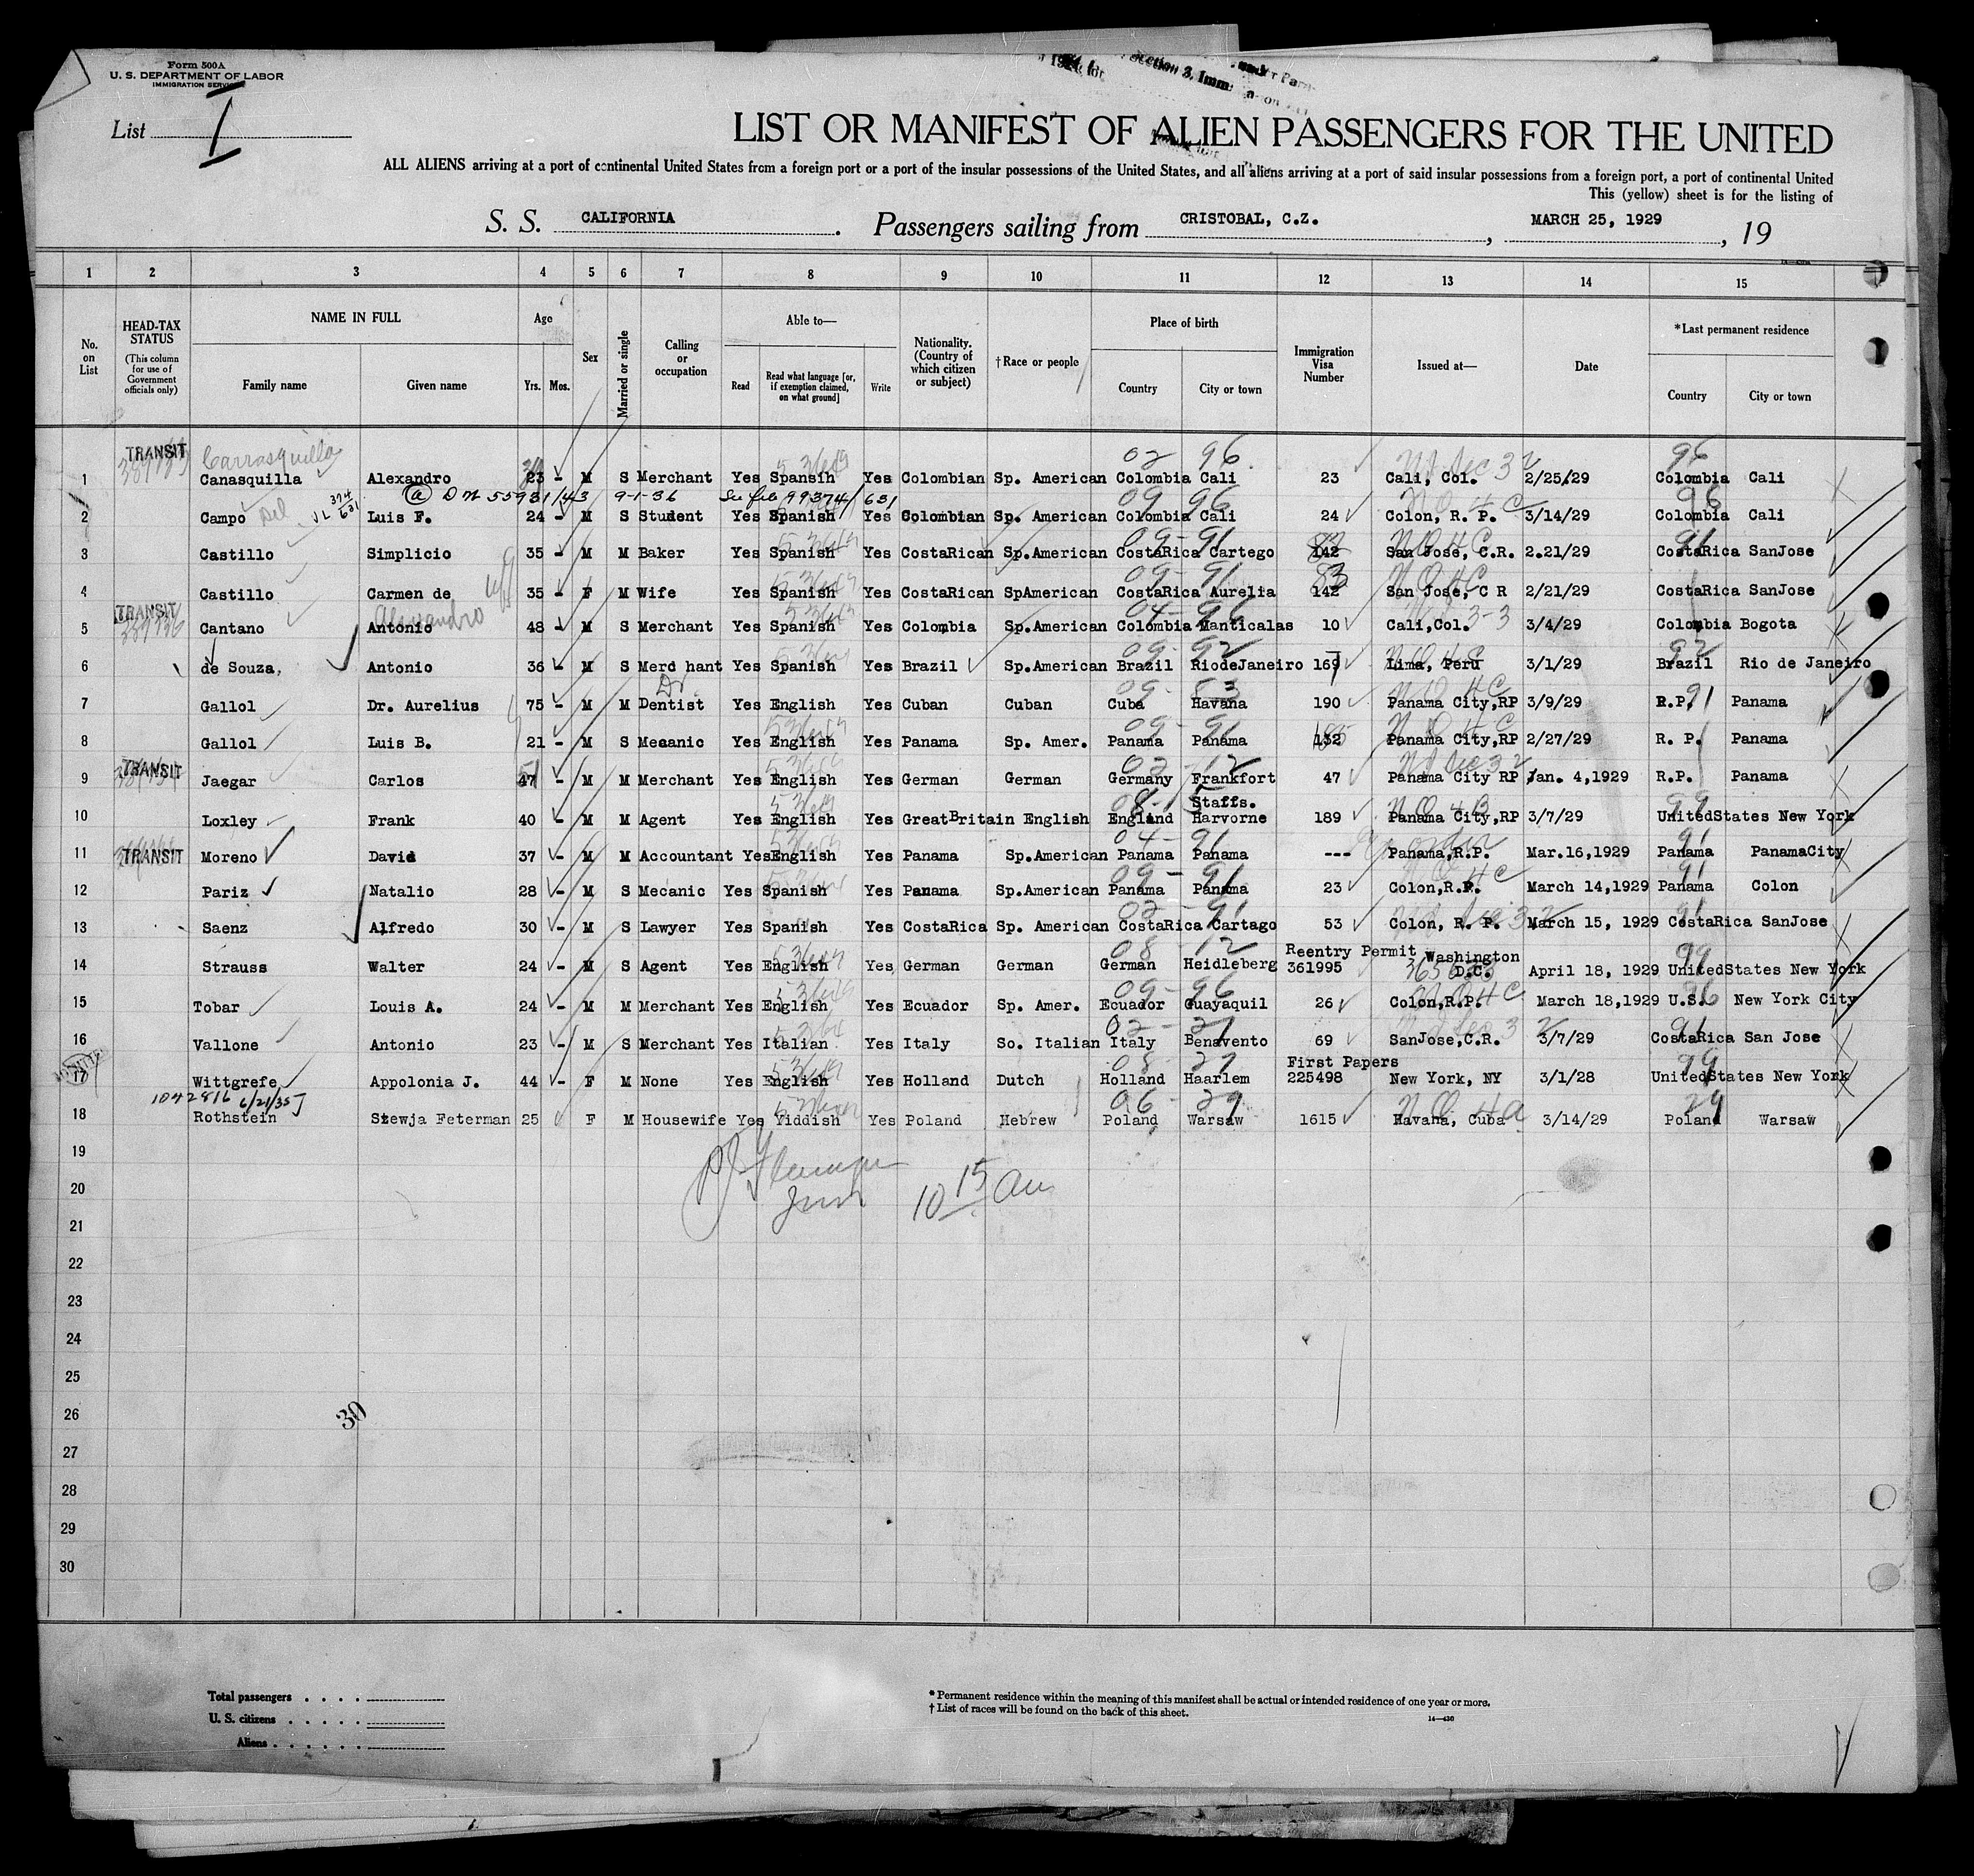 Form 500A
U. S. DEPARTMENT OF LABOR
IMMIGRATION SERVICE
List I
LIST OR MANIFEST OF ALIEN PASSENGERS FOR THE UNITED
ALL ALIENS arriving at a port of continental United States from a foreign port or a port of the insular possessions of the United States, and all aliens arriving at a port of said insular possessions from a foreign port, a port of continental United
This (yellow) sheet is for the listing of
S. S. CALIFORNIA. Passengers sailing from CRISTOBAL, C.Z., MARCH 25, 1929, 19
1 2 3 4 5 6 7 8 9 10 11 12 13 14 15
No. on List
HEAD-TAX STATUS (This column for use of Government officials only)
NAME IN FULL
Family name Given name
Age
Yrs. Mos.
Sex
Married or single
Calling or occupation
Able to—
Read Read what language [or, if exemption claimed, on what ground] Write
Nationality. (Country of which citizen or subject)
†Race or people
Place of birth
Country City or town
Immigration Visa Number
Issued at—
Date
*Last permanent residence
Country City or town
TRANSIT Carrasquilla 02 96 96
1 Canasquilla Alexandro 23 - M S Merchant Yes Spansih Yes Colombian Sp. American Colombia Cali 23 Cali, Col. 2/25/29 Colombia Cali
9-1-36 See file 99374/631
2 Campo Del Luis F. 24 - M S Student Yes Spanish Yes Colombian Sp. American Colombia Cali 24 Colon, R. P. 3/14/29 Colombia Cali
3 Castillo Simplicio 35 - M M Baker Yes Spanish Yes CostaRican Sp.American CostaRica Cartego 142 San Jose, C.R. 2.21/29 CostaRica SanJose
4 Castillo Carmen de 35 - F M Wife Yes Spanish Yes CostaRican SpAmerican CostaRica Aurelia 142 San Jose, C R 2/21/29 CostaRica SanJose
TRANSIT
5 Cantano Antonio 48 - M S Merchant Yes Spanish Yes Colombia Sp.American Colombia Manticalas 10 Cali,Col. 3/4/29 Colombia Bogota
6 de Souza, Antonio 36 - M S Merd hant Yes Spanish Yes Brazil Sp.American Brazil RiodeJaneiro 169 Lima, Peru 3/1/29 Brazil Rio de Janeiro
7 Gallol Dr. Aurelius 75 - M M Dentist Yes English Yes Cuban Cuban Cuba Havana 190 Panama City,RP 3/9/29 R.P. Panama
8 Gallol Luis B. 21 - M S Mecanic Yes English Yes Panama Sp. Amer. Panama Panama 132 Panama City,RP 2/27/29 R. P. Panama
TRANSIT
9 Jaegar Carlos 47 - M M Merchant Yes English Yes German German Germany Frankfort 47 Panama City RP Jan. 4,1929 R.P. Panama
Staffs.
10 Loxley Frank 40 - M M Agent Yes English Yes GreatBritain English England Harvorne 189 Panama City,RP 3/7/29 UnitedStates New York
11 TRANSIT Moreno David 37 - M M Accountant Yes English Yes Panama Sp.American Panama Panama --- Panama,R.P. Mar.16,1929 Panama PanamaCity
12 Pariz Natalio 28 - M S Mecanic Yes Spanish Yes Panama Sp.American Panama Panama 23 Colon,R.P. March 14,1929 Panama Colon
13 Saenz Alfredo 30 - M S Lawyer Yes Spanish Yes CostaRica Sp. American CostaRica Cartago 53 Colon, R. P. March 15, 1929 CostaRica SanJose
Reentry Permit Washington
14 Strauss Walter 24 - M S Agent Yes English Yes German German German Heidleberg 361995 D.C. April 18, 1929 UnitedStates New York
15 Tobar Louis A. 24 - M M Merchant Yes English Yes Ecuador Sp. Amer. Ecuador Guayaquil 26 Colon,R.P. March 18,1929 U.S. New York City
16 Vallone Antonio 23 - M S Merchant Yes Italian Yes Italy So. Italian Italy Benavento 69 SanJose,C.R. 3/7/29 CostaRica San Jose
First Papers
17 Wittgrefe Appolonia J. 44 - F M None Yes English Yes Holland Dutch Holland Haarlem 225498 New York, NY 3/1/28 UnitedStates New York
1042816 6/21/35
18 Rothstein Szewja Feterman 25 F M Housewife Yes Yiddish Yes Poland Hebrew Poland Warsaw 1615 Havana, Cuba 3/14/29 Poland Warsaw
19
20 10 15 am
21
22
23
24
25
26 30
27
28
29
30
Total passengers
U. S. citizens
Aliens
* Permanent residence within the meaning of this manifest shall be actual or intended residence of one year or more.
† List of races will be found on the back of this sheet.
14—430